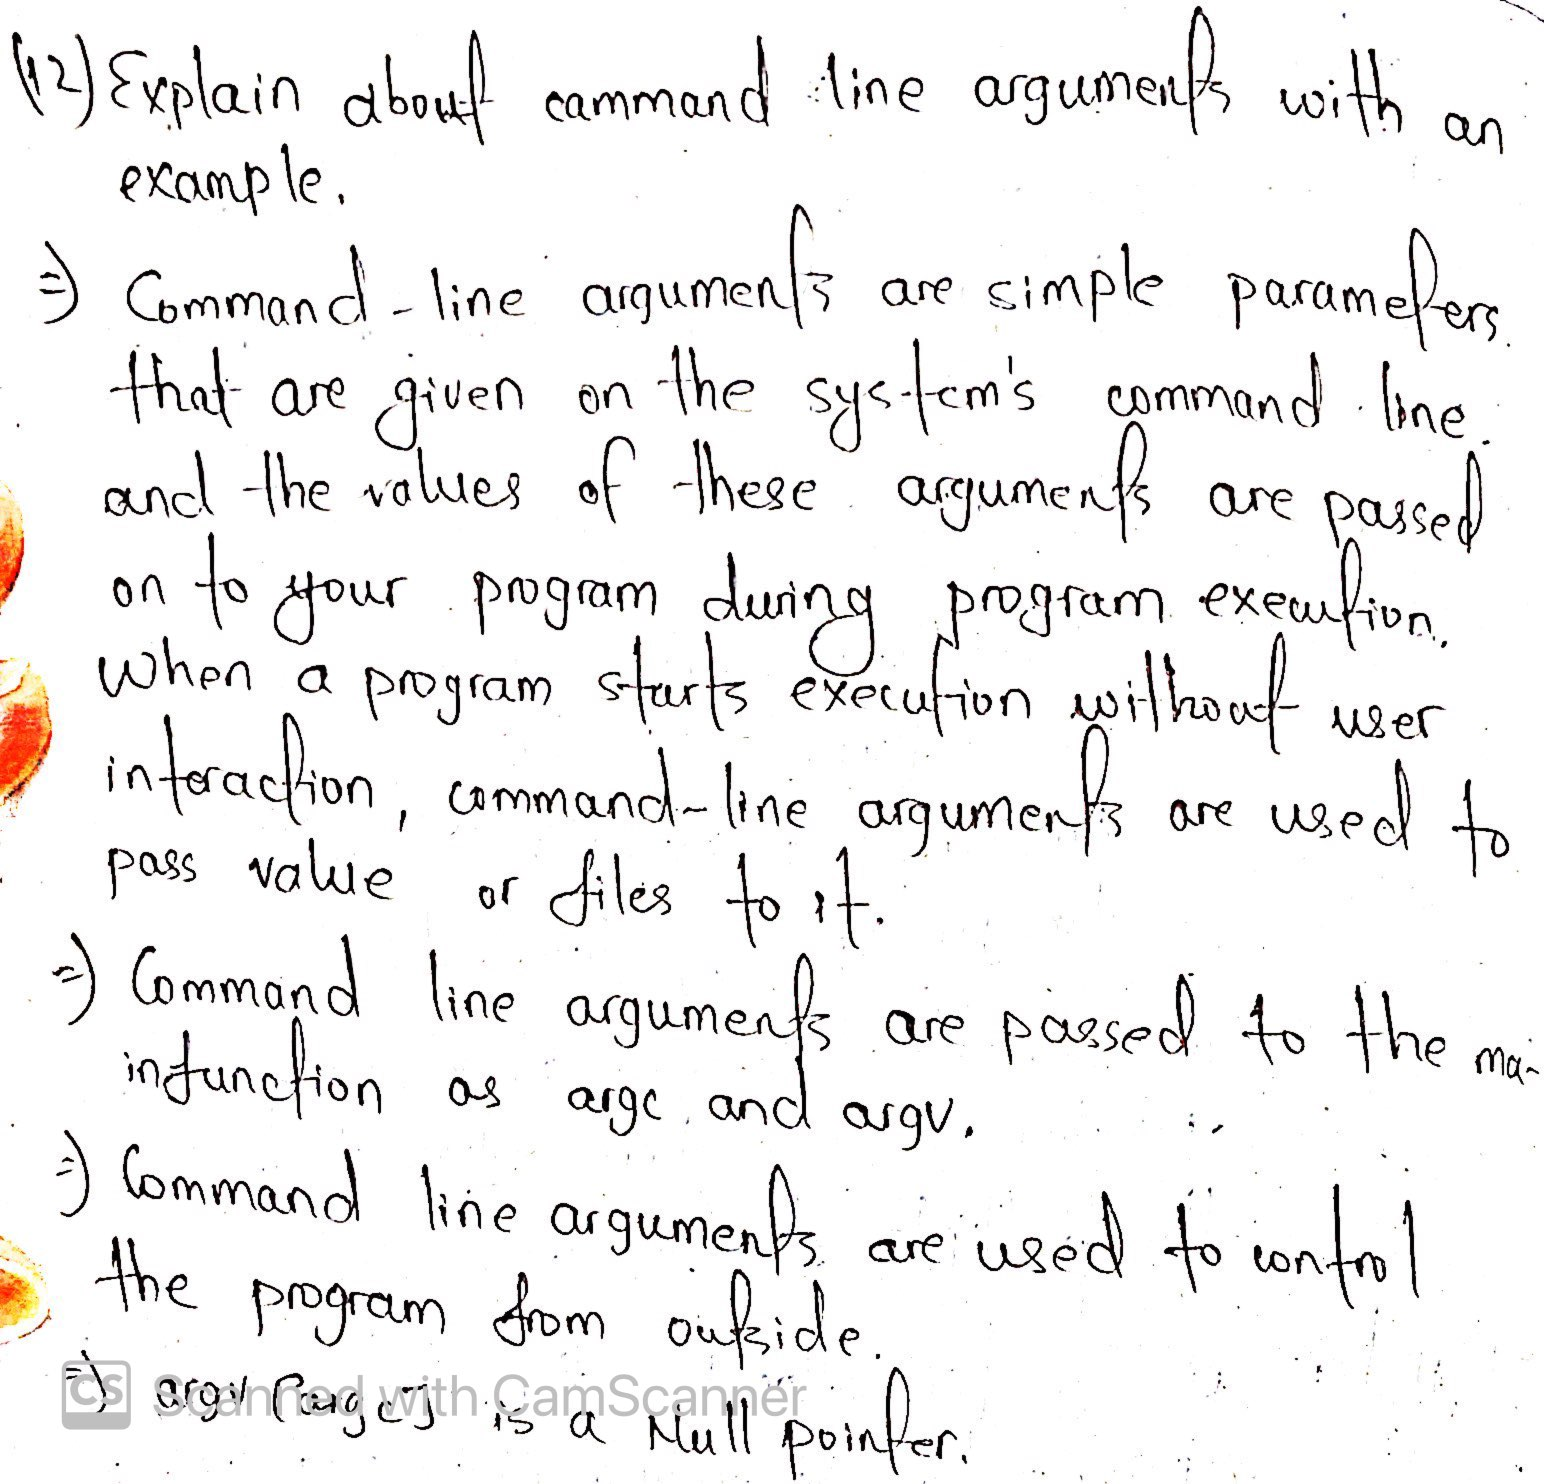 (12) Explain about cammand line arguments with an
example.
⇒ Command-line arguments are simple parameters
that are given on the system's command line
and the values of these arguments are passed
on to your program during program execution.
When a program starts execution without user
interaction, command-line arguments are used to
pass value or files to it.
⇒ Command line arguments are passed to the mai-
infunction as argc and argv.
⇒ Command line arguments are used to control
the program from outside.
⇒ argv [argc] is a Null pointer.
CS Scanned with CamScanner